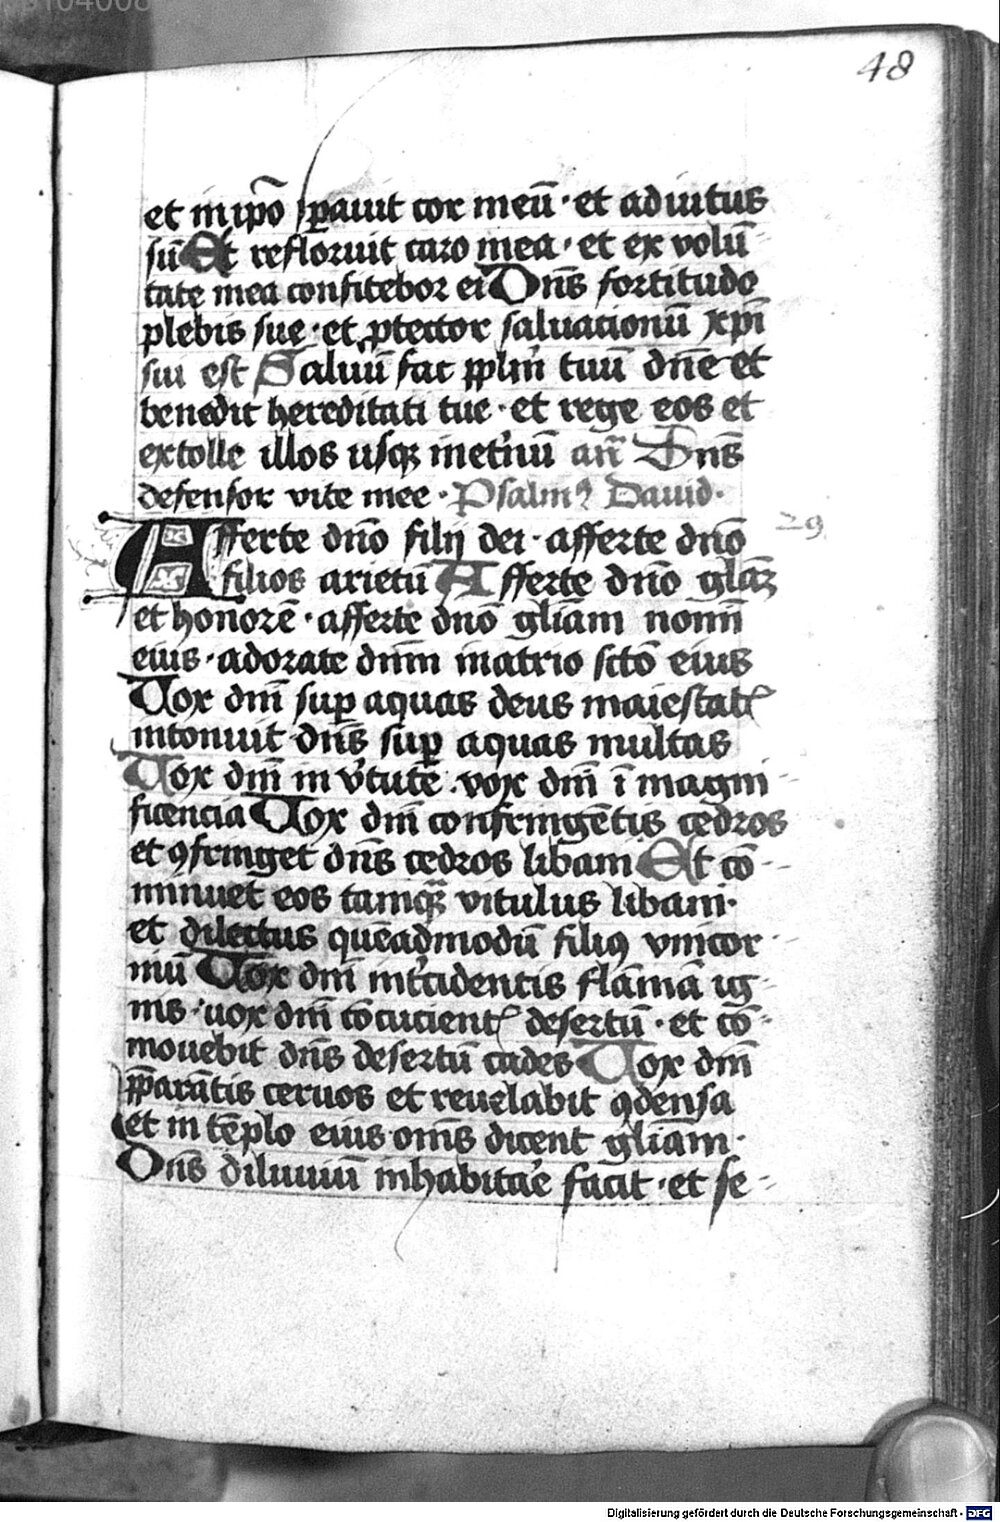 48
et in ipō sperauit cor meū · et adiutus
sū Et refloruit caro mea · et ex volū
tate mea confitebor ei Dns̄ fortitudo
plebis sue · et ꝓtector saluacionū xp̄i
sui est Saluū fac pplm̄ tuū dn̄e et
benedic hereditati tue · et rege eos et
extolle illos usqꝫ inet̓nū an̄ Dns̄
defensor vite mee · Psalmꝰ Dauid ·
Afferte dn̄o filij dei · afferte dn̄o
29
filios arietū Afferte dn̄o glaꝫ
et honorē · afferte dn̄o gliam nomī
eius · adorate dnm̄ in atrio sctō eius
Uox dnī suꝑ aquas deus maiestatꝭ
intonuit dns̄ suꝑ aquas multas
Uox dnī in v̓tute · vox dnī ī magni
ficencia Uox dnī confringētis cedros
et ꝯfringet dns̄ cedros libani Et cō
minuet eos tamqꝫ vitulus libani ·
et dilectus queādmodū filiꝰ vnicor
niū Uox dnī int̓cidentis flāmā ig
nis · uox dnī cōcucientꝭ desertū · et cō
mouebit dns̄ desertū cades Uox dnī
p̄parātis ceruos et reuelabit ꝯdensa
et in tēplo eius oms̄ dicent gliam ·
Dns̄ diluuiū inhabitar̓e facit · et se
Digitalisierung gefördert durch die Deutsche Forschungsgemeinschaft - DFG